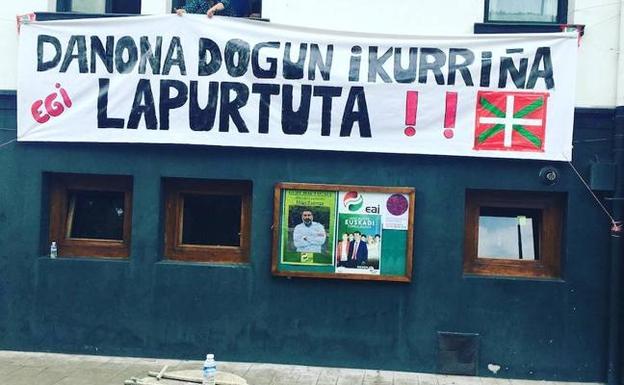 DANONA DOGUN IKURRIÑA
EGI
LAPURTUTA !!
eaj
EUSKADI